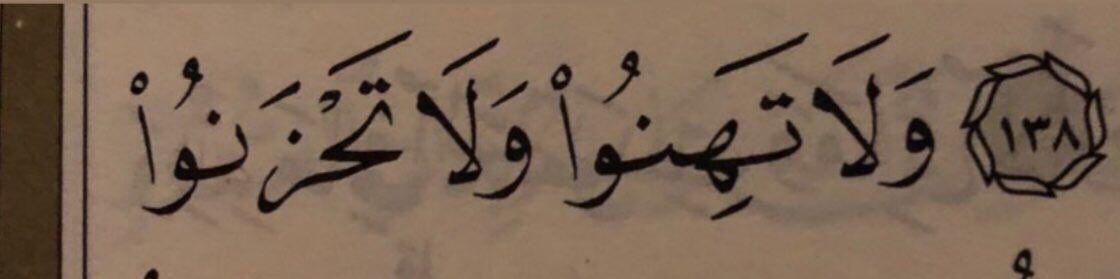 ١٣٨ وَلَا تَهِنُوا۟ وَلَا تَحْزَنُوا۟